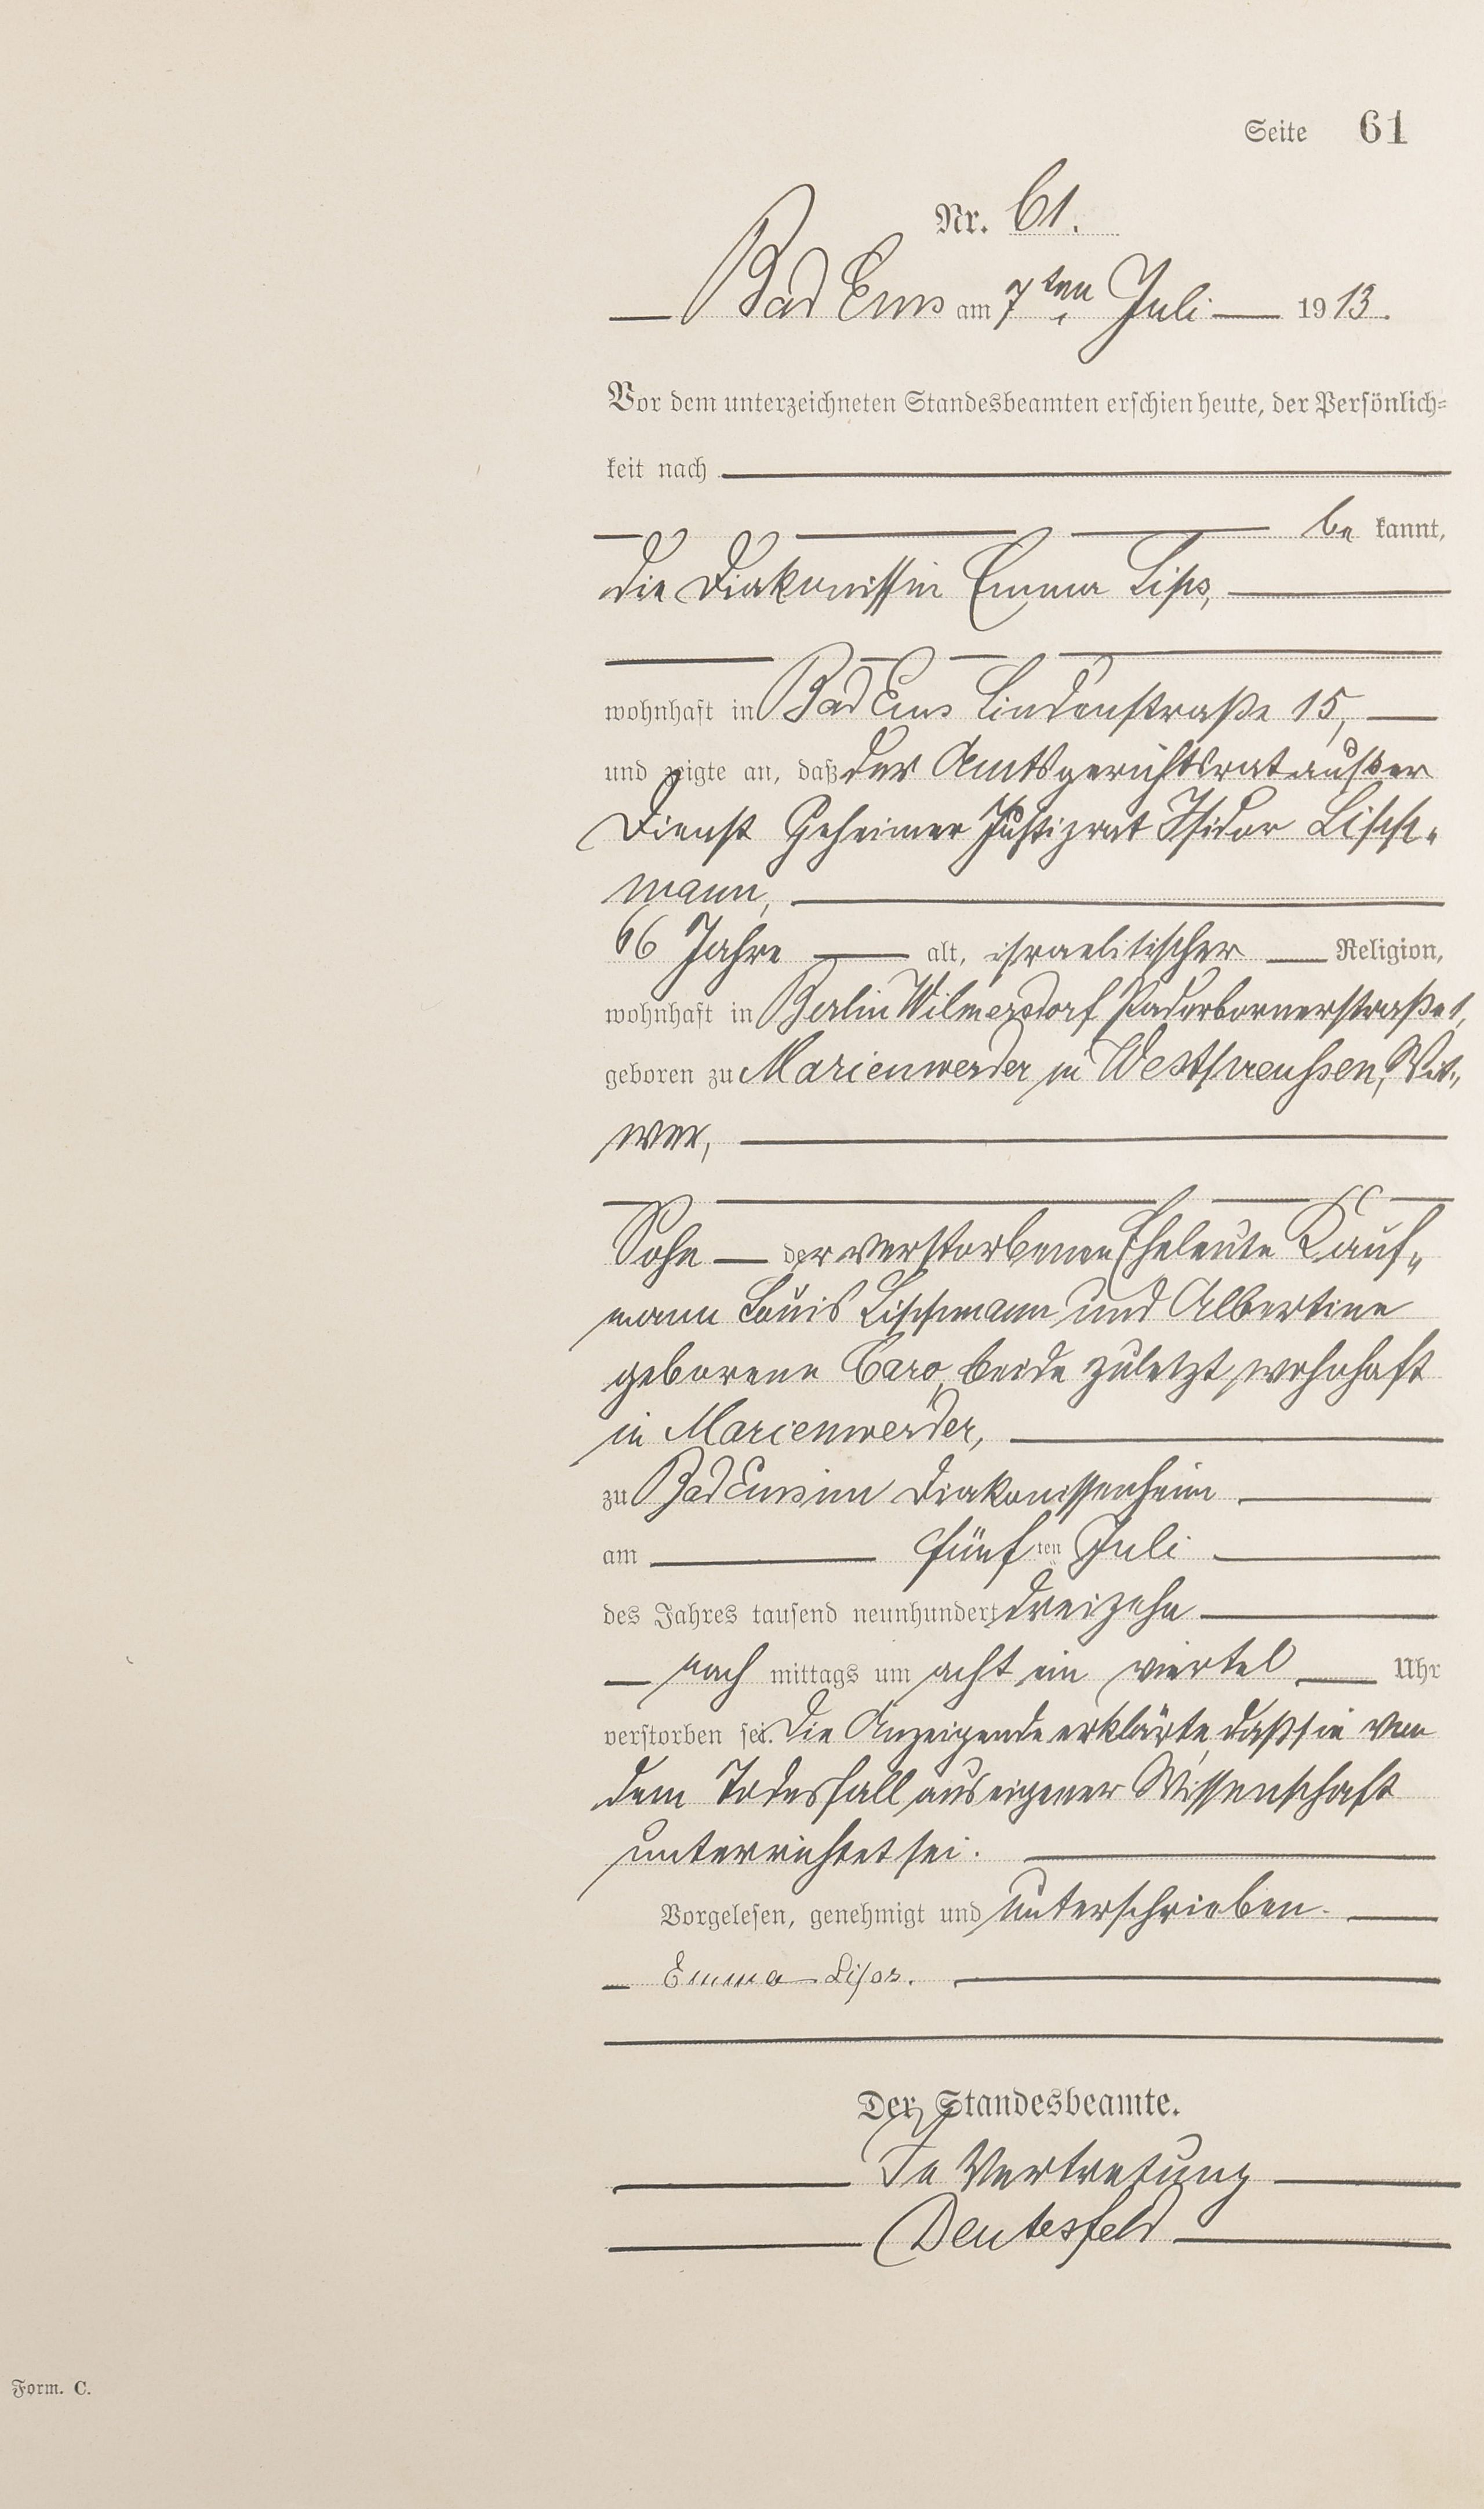 Seite 61
Nr. 61.
Bad Ems am 7ten Juli 1913.
Vor dem unterzeichneten Standesbeamten erschien heute, der Persönlich=
keit nach
be kannt,
die Diakonissin Emma Lips,
wohnhaft in Bad Ems Lindenstraße 15,
und zeigte an, daß der Amtsgerichtsrat außer
Dienst Geheimer Justizrat Isidor Lissh-
mann,
66 Jahre alt, israelitischer Religion,
wohnhaft in Berlin Wilmersdorf Paderbornerstraße 1,
geboren zu Marienwerder in Westpreußen, Wit-
wer,
Sohn der verstorbenen Eheleute Kauf-
mann Louis Lissmann und Albertine
geborene Caro, beide zuletzt wohnhaft
in Marienwerder,
zu Bad Ems im Diakonissenheim
am fünften Juli
des Jahres tausend neunhundert dreizehn
nach mittags um acht ein viertel Uhr
verstorben sei. Die Anzeigende erklärte, daß sie von
dem Todesfall aus eigener Wissenschaft
unterrichtet sei.
Vorgelesen, genehmigt und unterschrieben.
Emma Lips.
Der Standesbeamte.
In Vertretung
Deutesfeld
Form. C.